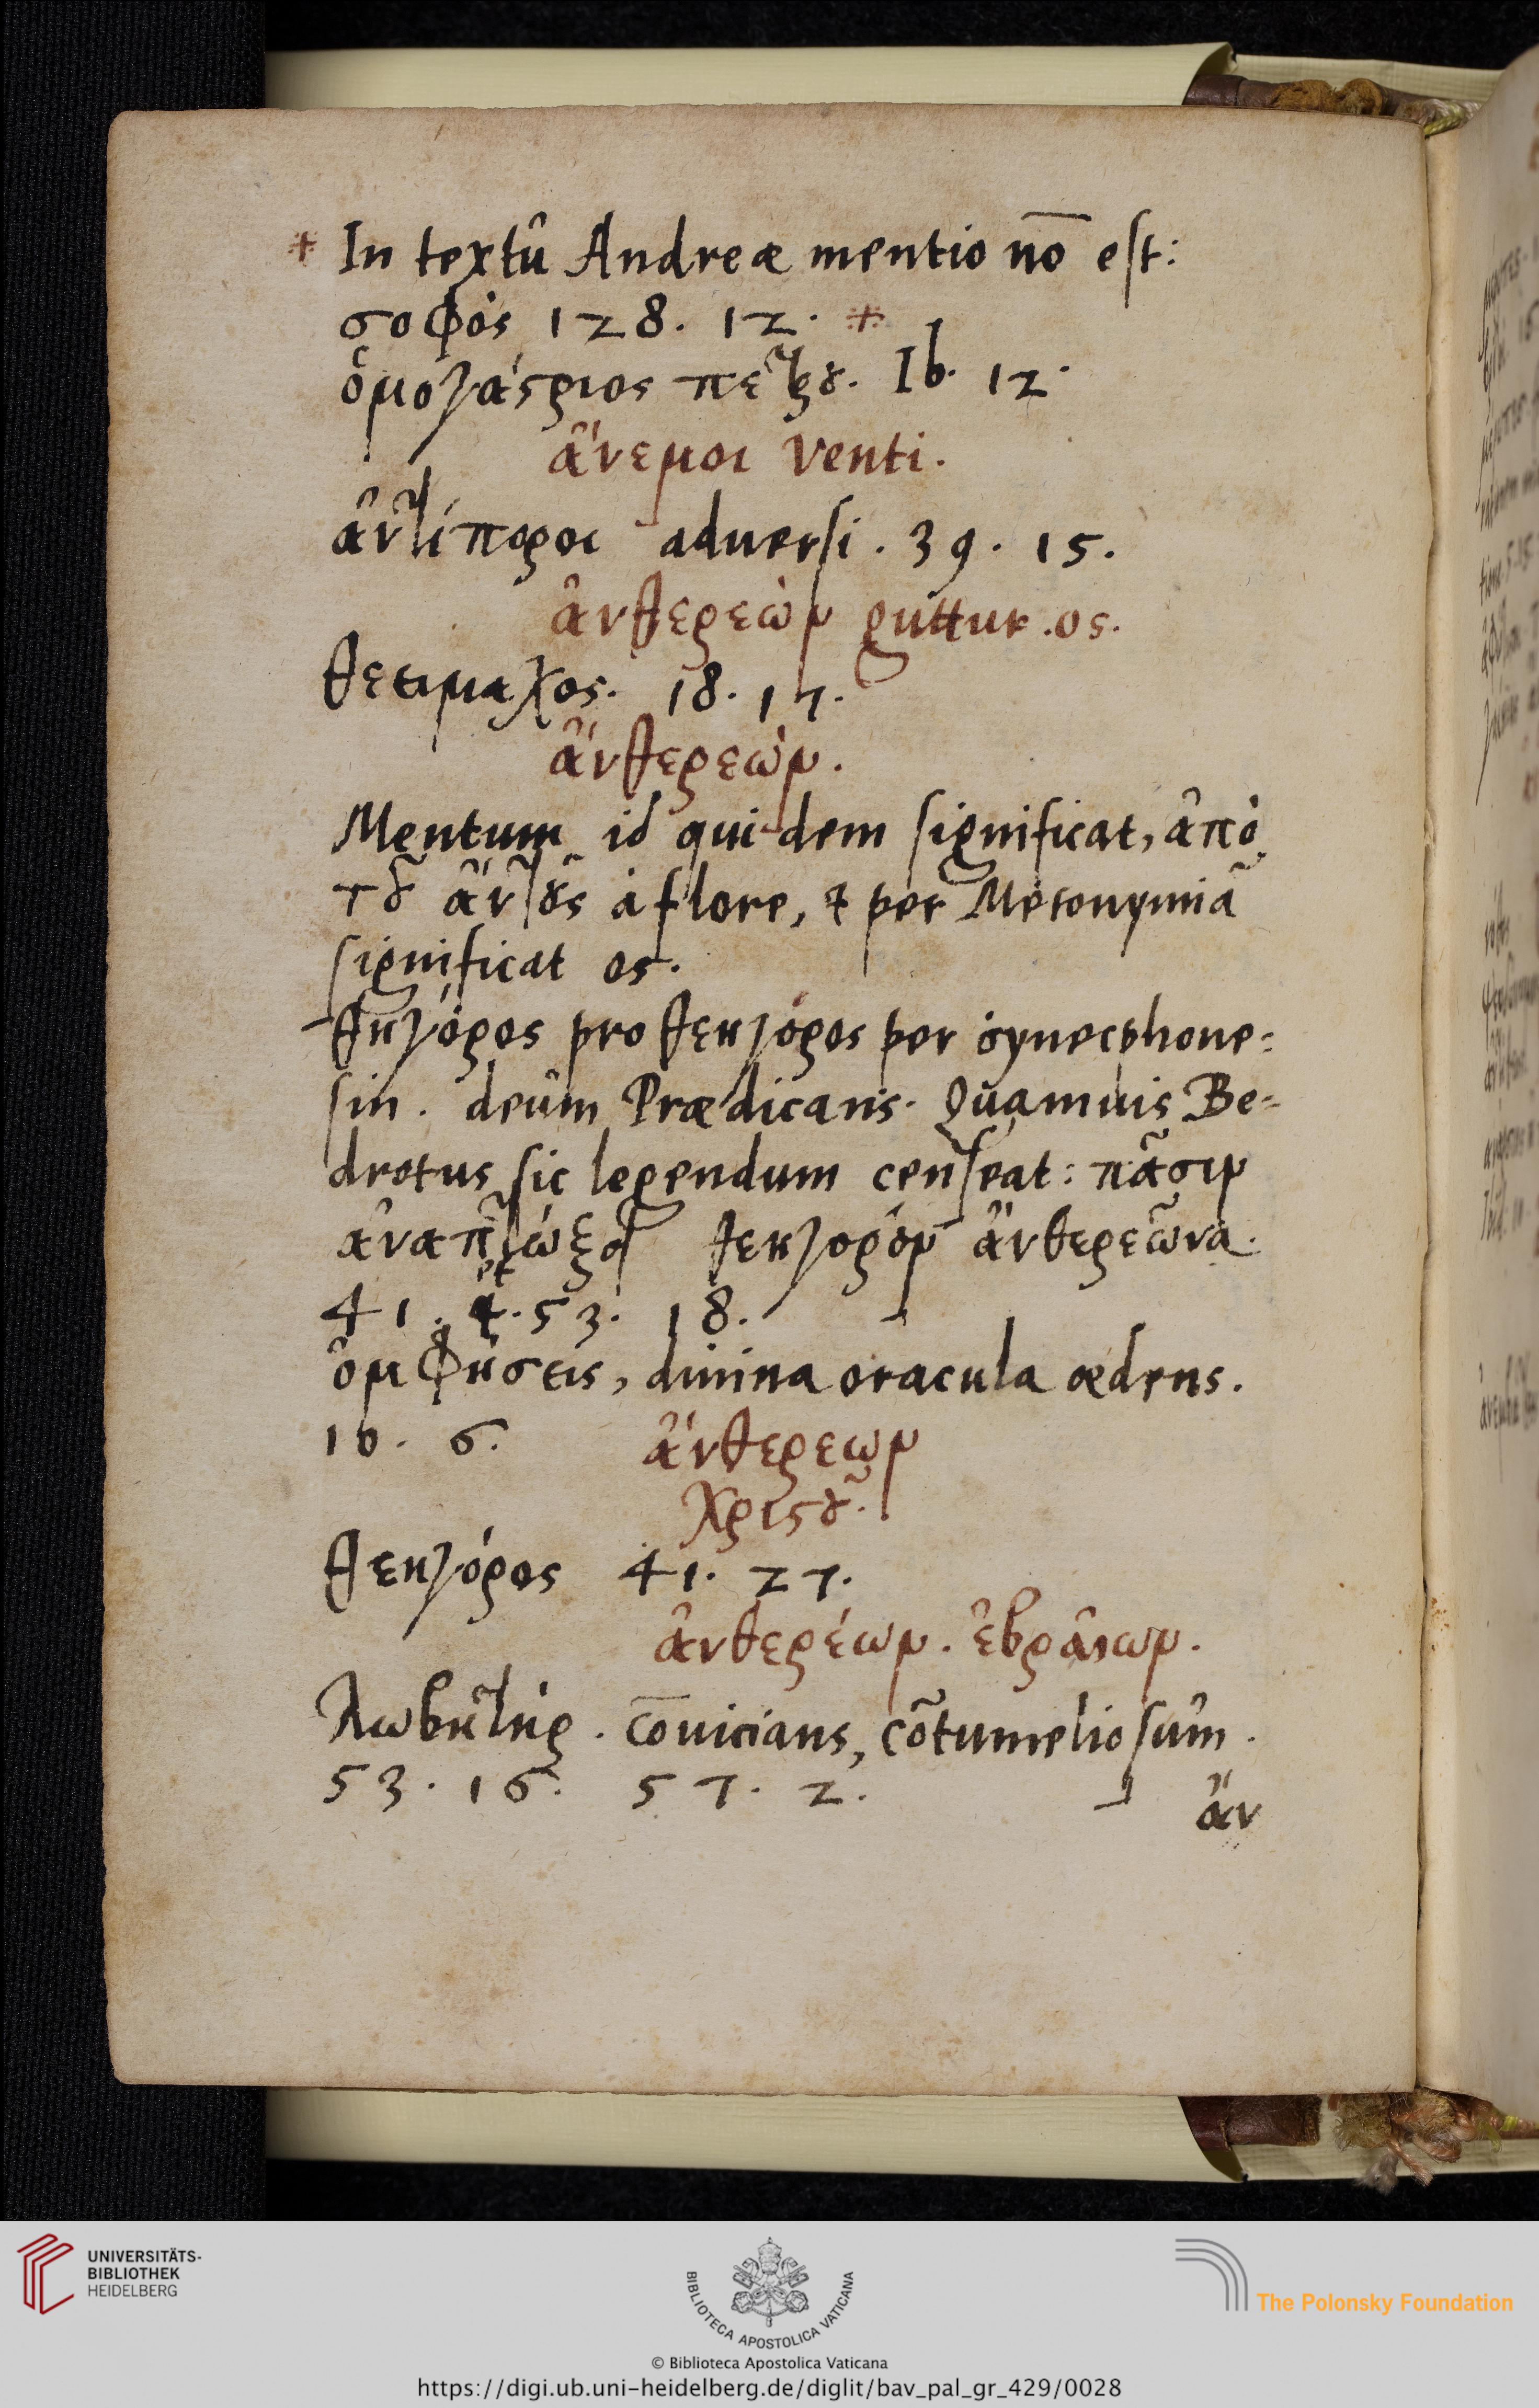 + In textû Andreæ mentio nō est:
σοφὸς 128. 12. +
ὁμογάστριος πέτρου. Ib. 12.
ἄνεμοι Venti.
ἀντίποροι adversi. 39. 15.
ἀνθερεὼν guttur. os.
θεειμαχος. 18. 17.
ἄνθερεὼν.
Mentum id quidem significat, ἀπὸ
τοῦ ἄνθους à flore, & per Metonymiã
significat os.
θηγόρος pro θεηγόρος per synecphone-
sin. deûm Prædicans. Quamuis Be-
drotus sic legendum censeat: πᾶσιν
θεηγορὸν ἄνθερεῶνα.
41. et. 53. 18.
ὀμφήσεις, diuina oracula ædens.
16. 6. ἄνθερεων
χριστοῦ.
θεηγόρος 41. 27.
ἀνθερέων. ἑβραίων.
Λωβητὴρ. cōuicians, cõtumeliosûm.
53. 16. 57. 2.
ἄν
UNIVERSITÄTS-
BIBLIOTHEK
HEIDELBERG
BIBLIOTECA APOSTOLICA VATICANA
The Polonsky Foundation
© Biblioteca Apostolica Vaticana
https://digi.ub.uni-heidelberg.de/diglit/bav_pal_gr_429/0028